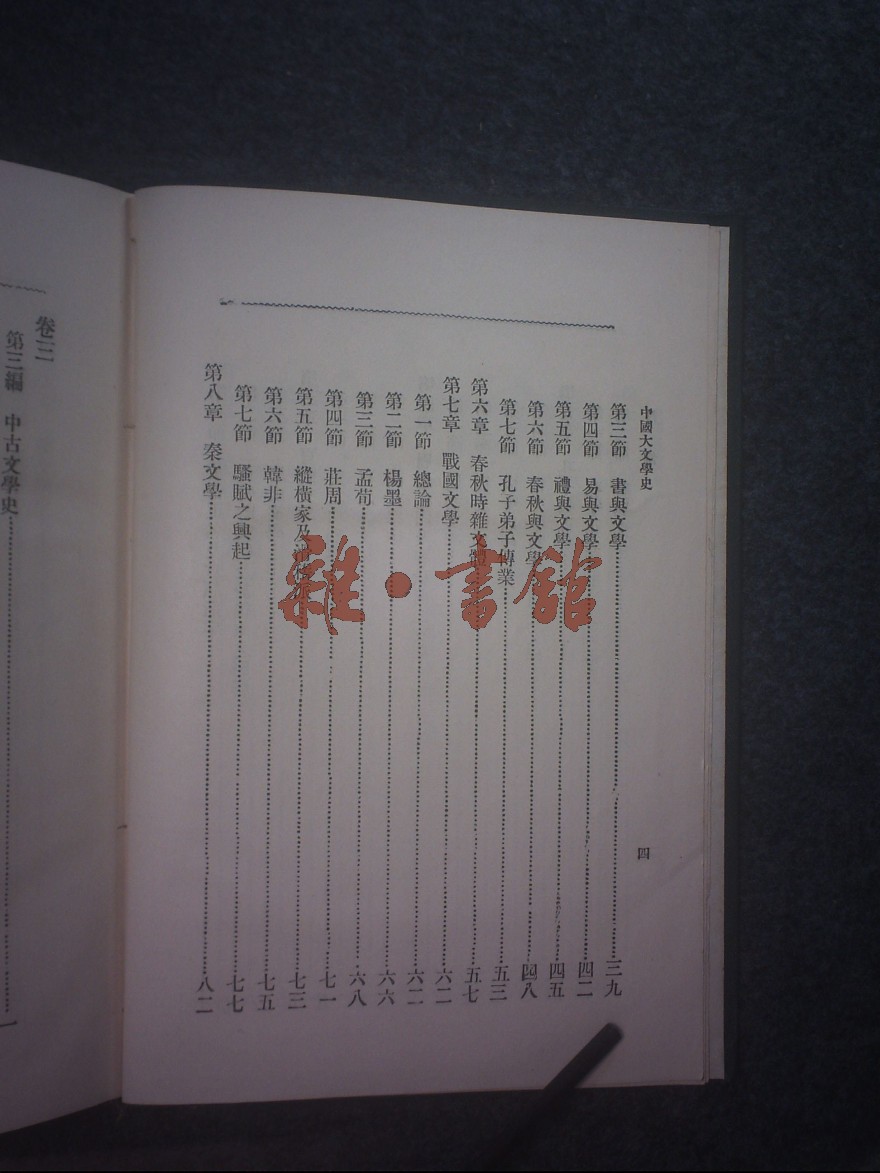 中國大文學史
四
第三節 書與文學 三九
第四節 易與文學 四二
第五節 禮與文學 四五
第六節 春秋與文學 四八
第七節 孔子弟子傳業 五三
第六章 春秋時雜文體 五七
第七章 戰國文學 六二
第一節 總論 六二
第二節 楊墨 六六
第三節 孟荀 六八
第四節 莊周 七一
第五節 縱橫家及 七三
第六節 韓非 七五
第七節 騷賦之興起 七七
第八章 秦文學 八二
卷三
第三編 中古文學史 一
雜·書館